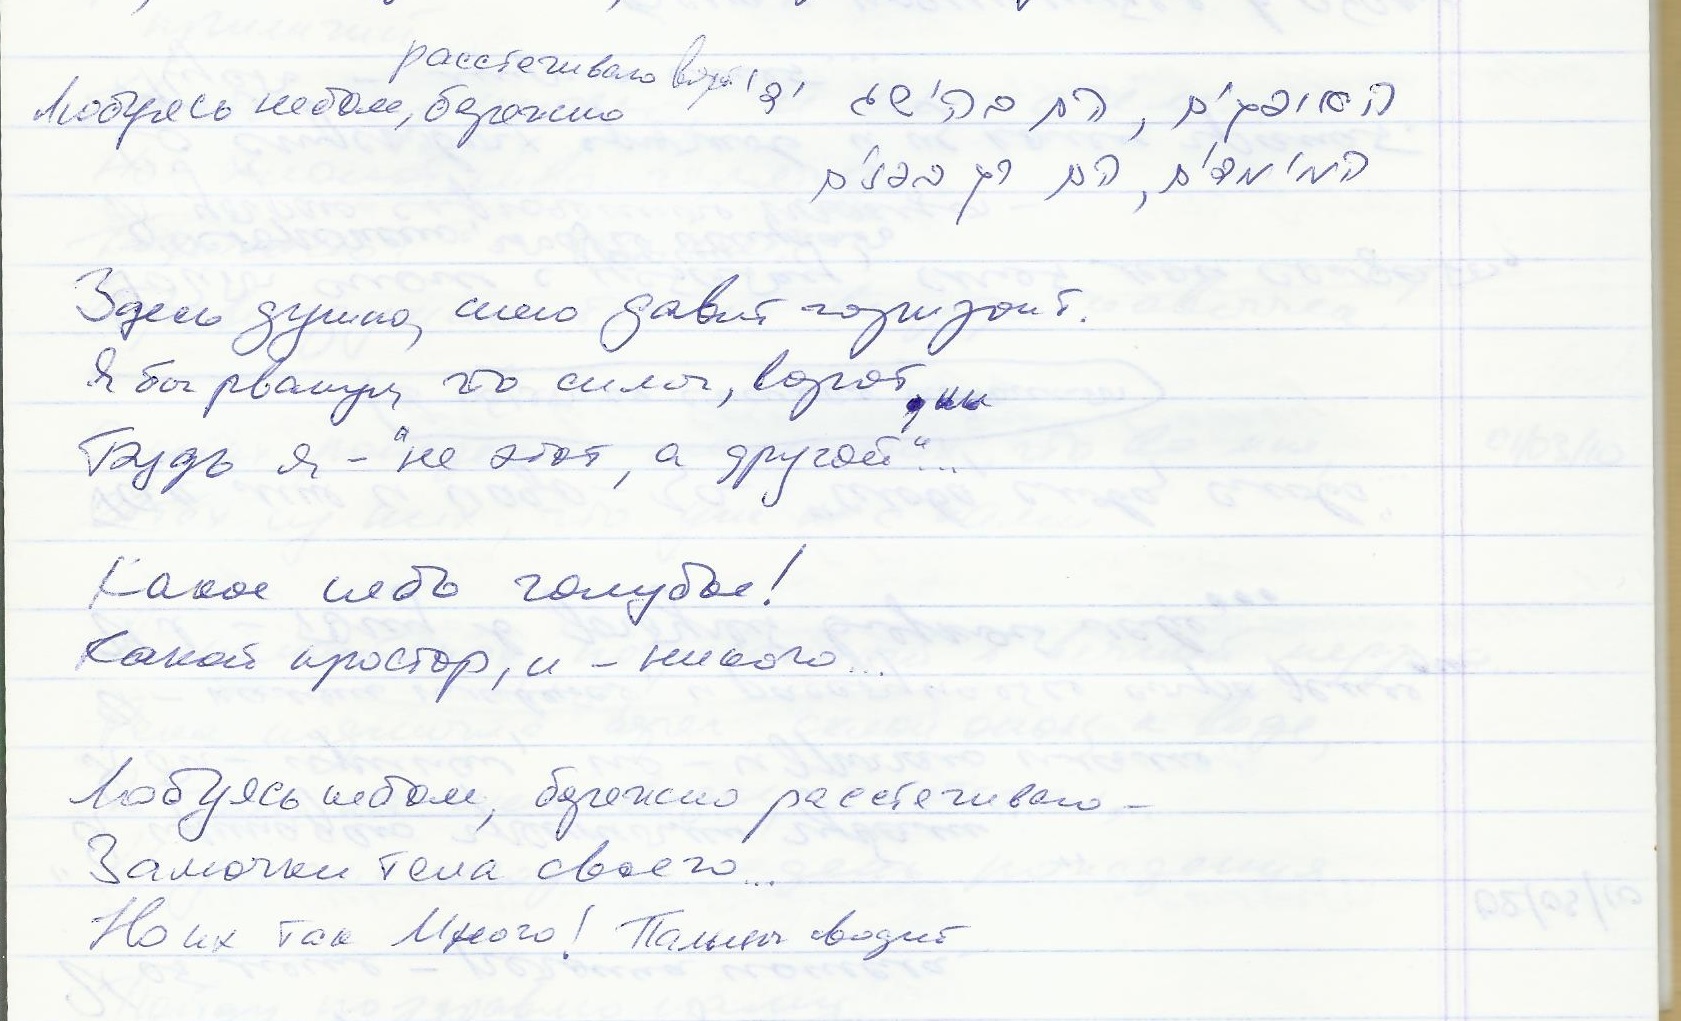 расстегиваю ворот
Любуясь небом, бережно
האופקים, הם בהישג ידי
המימדים, הם רק בפנים
Здесь душно, шею давит горизонт.
Я бы рванул, что силы, ворот,
Будь я – "не этот, а другой"...
Какое небо голубое!
Какой простор, и – никого...
Любуясь небом, бережно расстегиваю –
Замочки тела своего...
Но их так много! Пальцы сводит